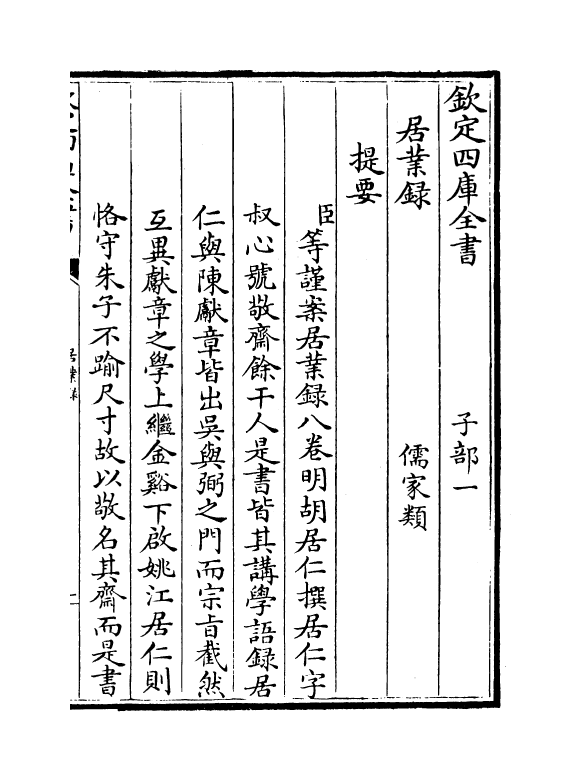 欽定四庫全書 子部一
居業録 儒家類
提要
臣等謹案居業録八卷明胡居仁撰居仁字
叔心號敬齋餘干人是書皆其講學語録居
仁與陳獻章皆出吳與弼之門而宗旨截然
互異獻章之學上繼金谿下啟姚江居仁則
恪守朱子不踰尺寸故以敬名其齋而是書